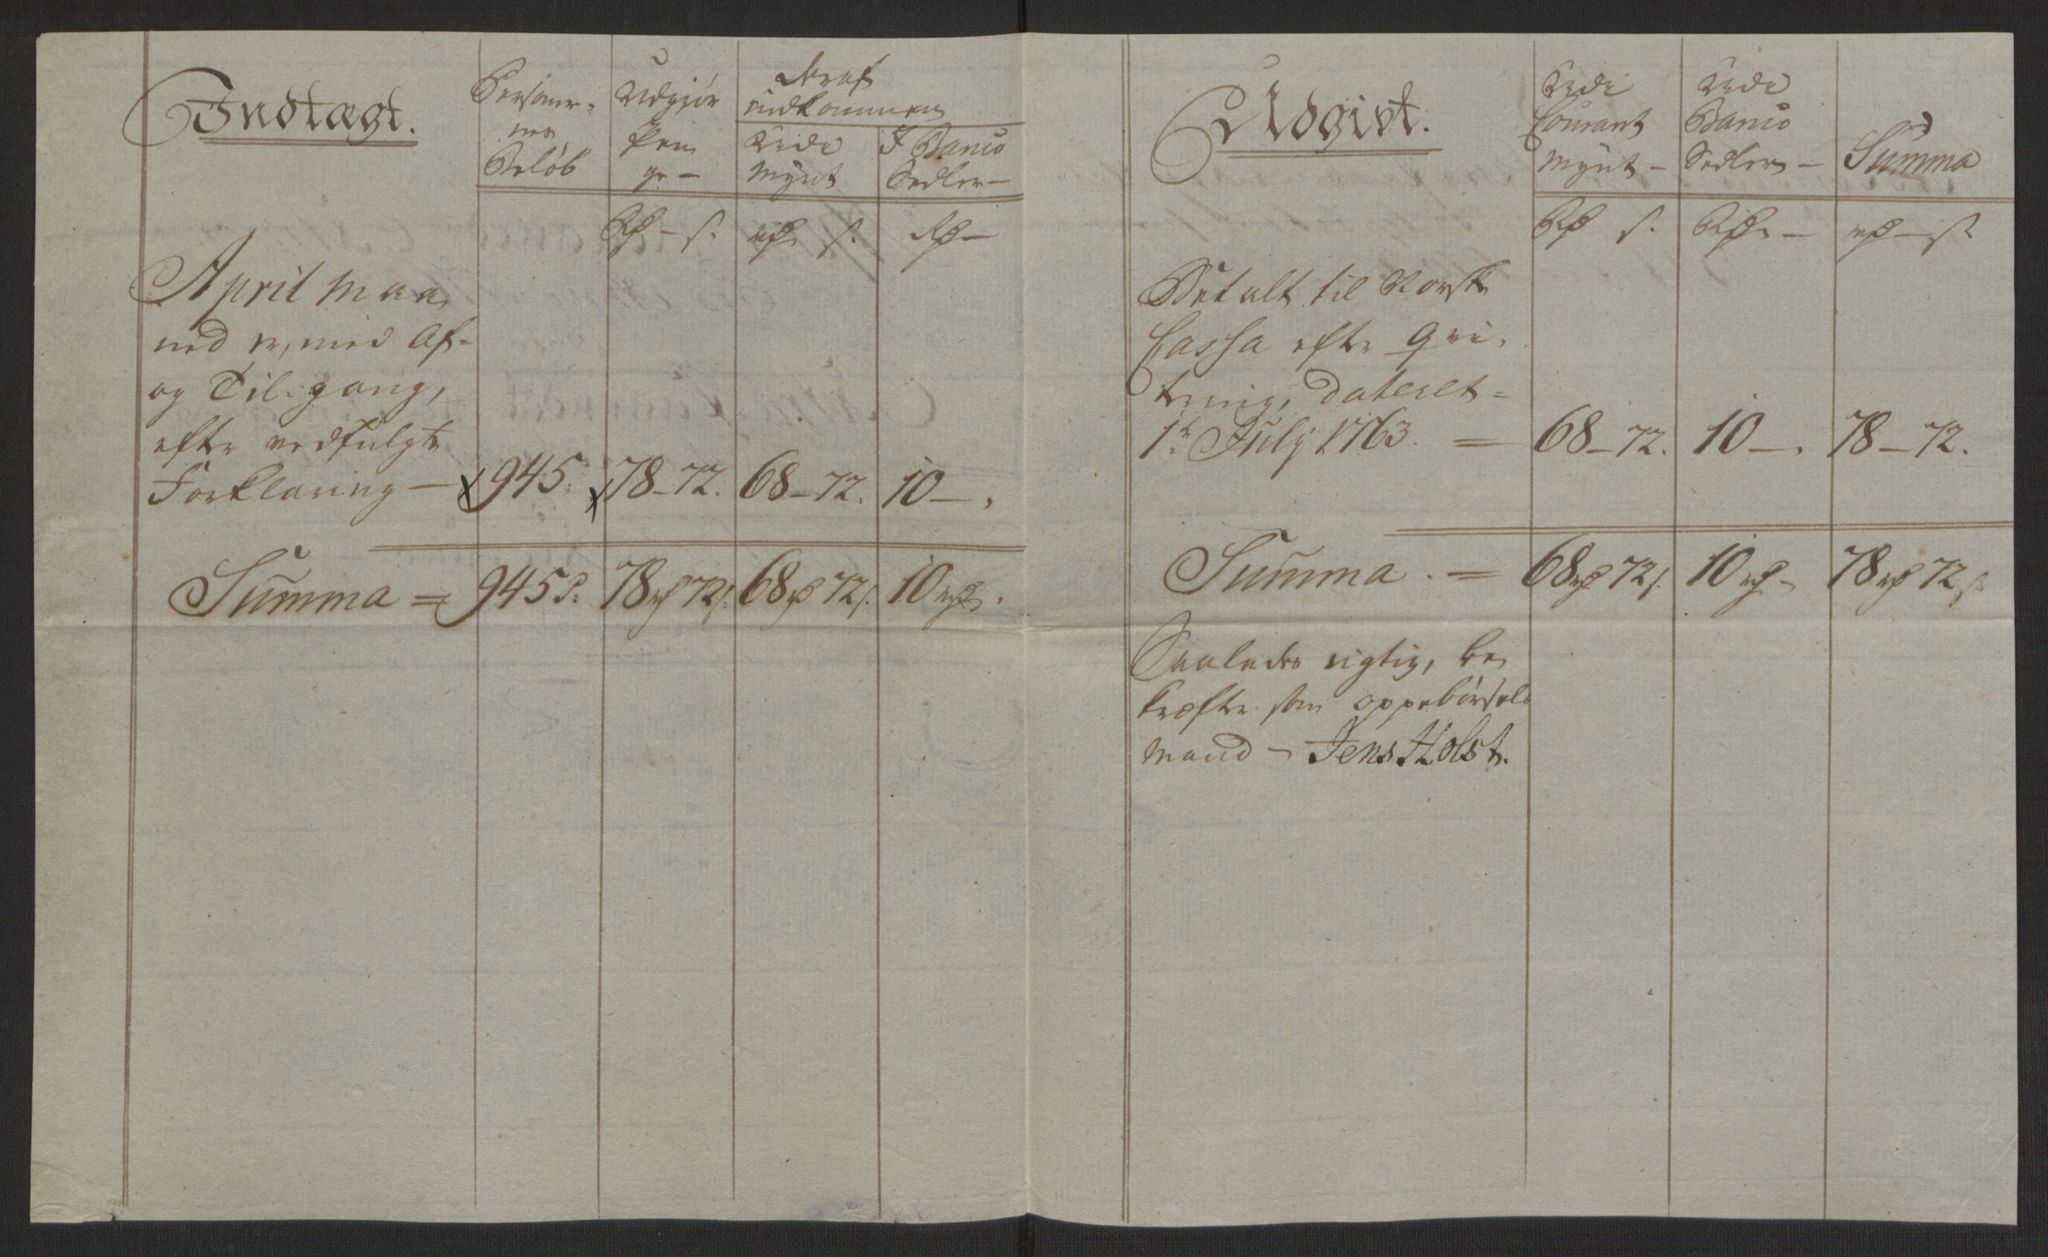 Indtægt.
Personer-
nes
Beløb
Udgiør
Pen
ge —
deraf
indkommen
Rede
Mynt
I Banco
Sedler —
Rd — s.
rd s.
Rd —
April Maa
ned er, med Af-
og Til-gang,
efter vedfulgte
Forklaring — 945. 78 — 72. 68 — 72. 10 — .
Summa = 945 P. 78 rd 72 s. 68 rd 72 s. 10 rd.
Udgivt.
Rede
Courant
Mynt —
Rede
Banco
Sedler —
Summa
Rd s.
Rd —
rd — s.
Betalt til Norske
Cassa efter Qvi-
tering, dateret =
1te July 1763. = 68 — 72. 10 — . 78 — 72.
Summa . = 68 rd 72 s. 10 rd — 78 rd 72 s.
Saaledes rigtig, be
kræfter som oppebørsels
Mand — Jens Holst.